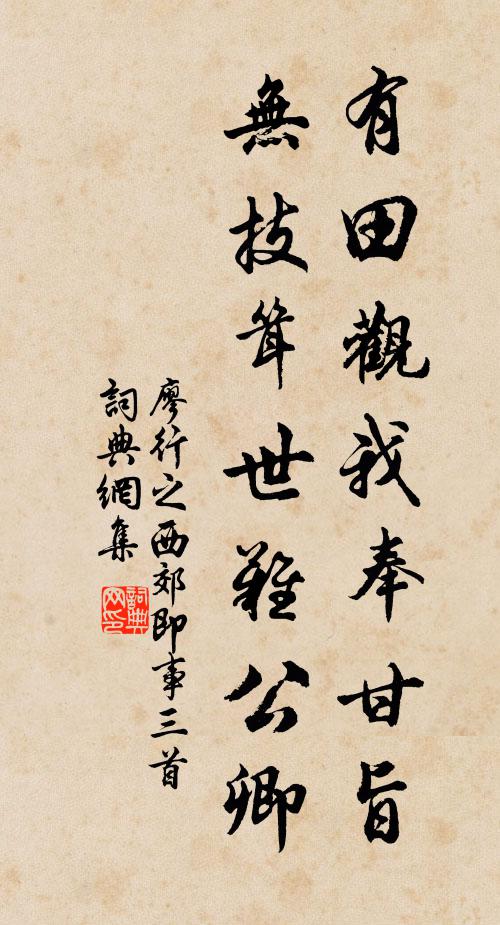 有田觀我奉甘旨
無技耸世難公卿
廖行之西郊即事三首
詞典網集
詞典网印